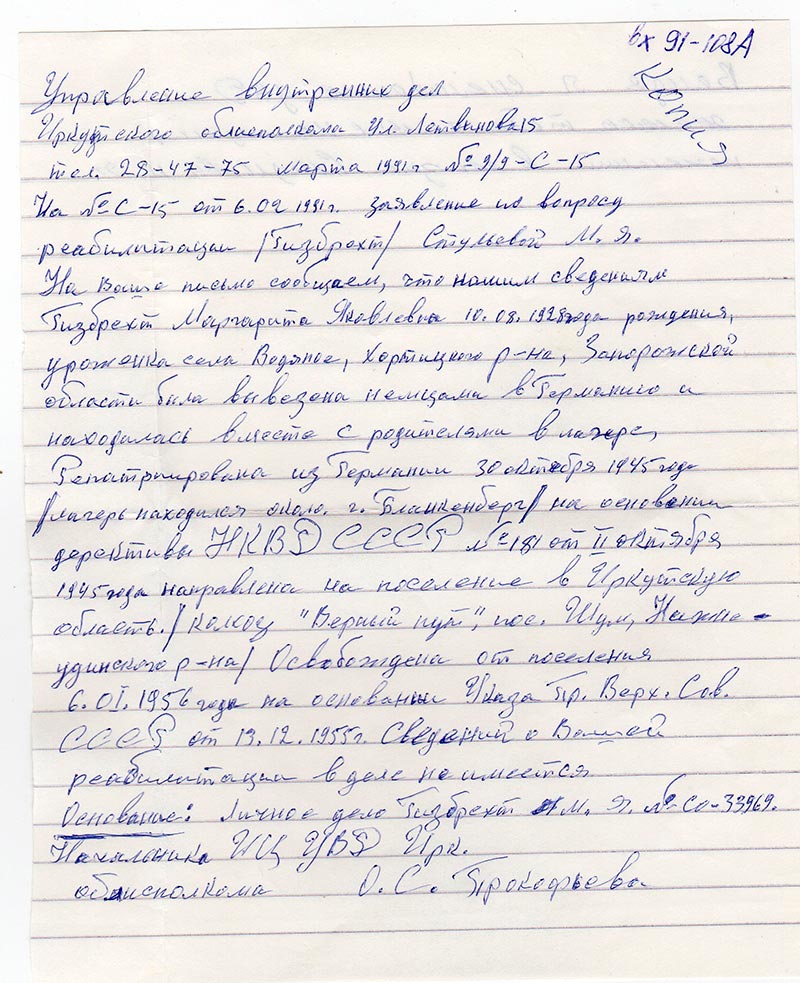 Вх 91-108А
Копия
Управление внутренних дел
Иркутского облисполкома Ул. Литвинова 15
тел. 28-47-75 марта 1991г №9/9-С-15
На №С-15 от 6.02 1991г. заявление по вопросу
реабилитации /Гизбрехт/ Стульевой М. Я.
На Ваше письмо сообщаем, что нашим сведениям
Гизбрехт Маргарита Яковлевна 10.08.1928года рождения,
уроженка села Водяное, Хортицкого р-на, Запорожской
области была вывезена немцами в Германию и
находилась вместе с родителями в лагере,
Репатриирована из Германии 30 октября 1945 года
/лагерь находился около. г. Бланкенберг/ на основании
дерективы НКВД СССР №181 от 11 октября
1945 года направлена на поселение в Иркутскую
область. / колхоз "Верный путь", пос. Шум, Нижне-
удинского р-на/ Освобождена от поселения
6.01.1956 года на основании Указа Пр. Верх. Сов.
СССР от 13.12.1955г. Сведений о Вашей
реабилитации в деле не имеется
Основание: Личное дело Гизбрехт М. Я. №СО-33969.
Начальника ИЦ УВД Ирк.
облисполкома О. С. Прокофьева